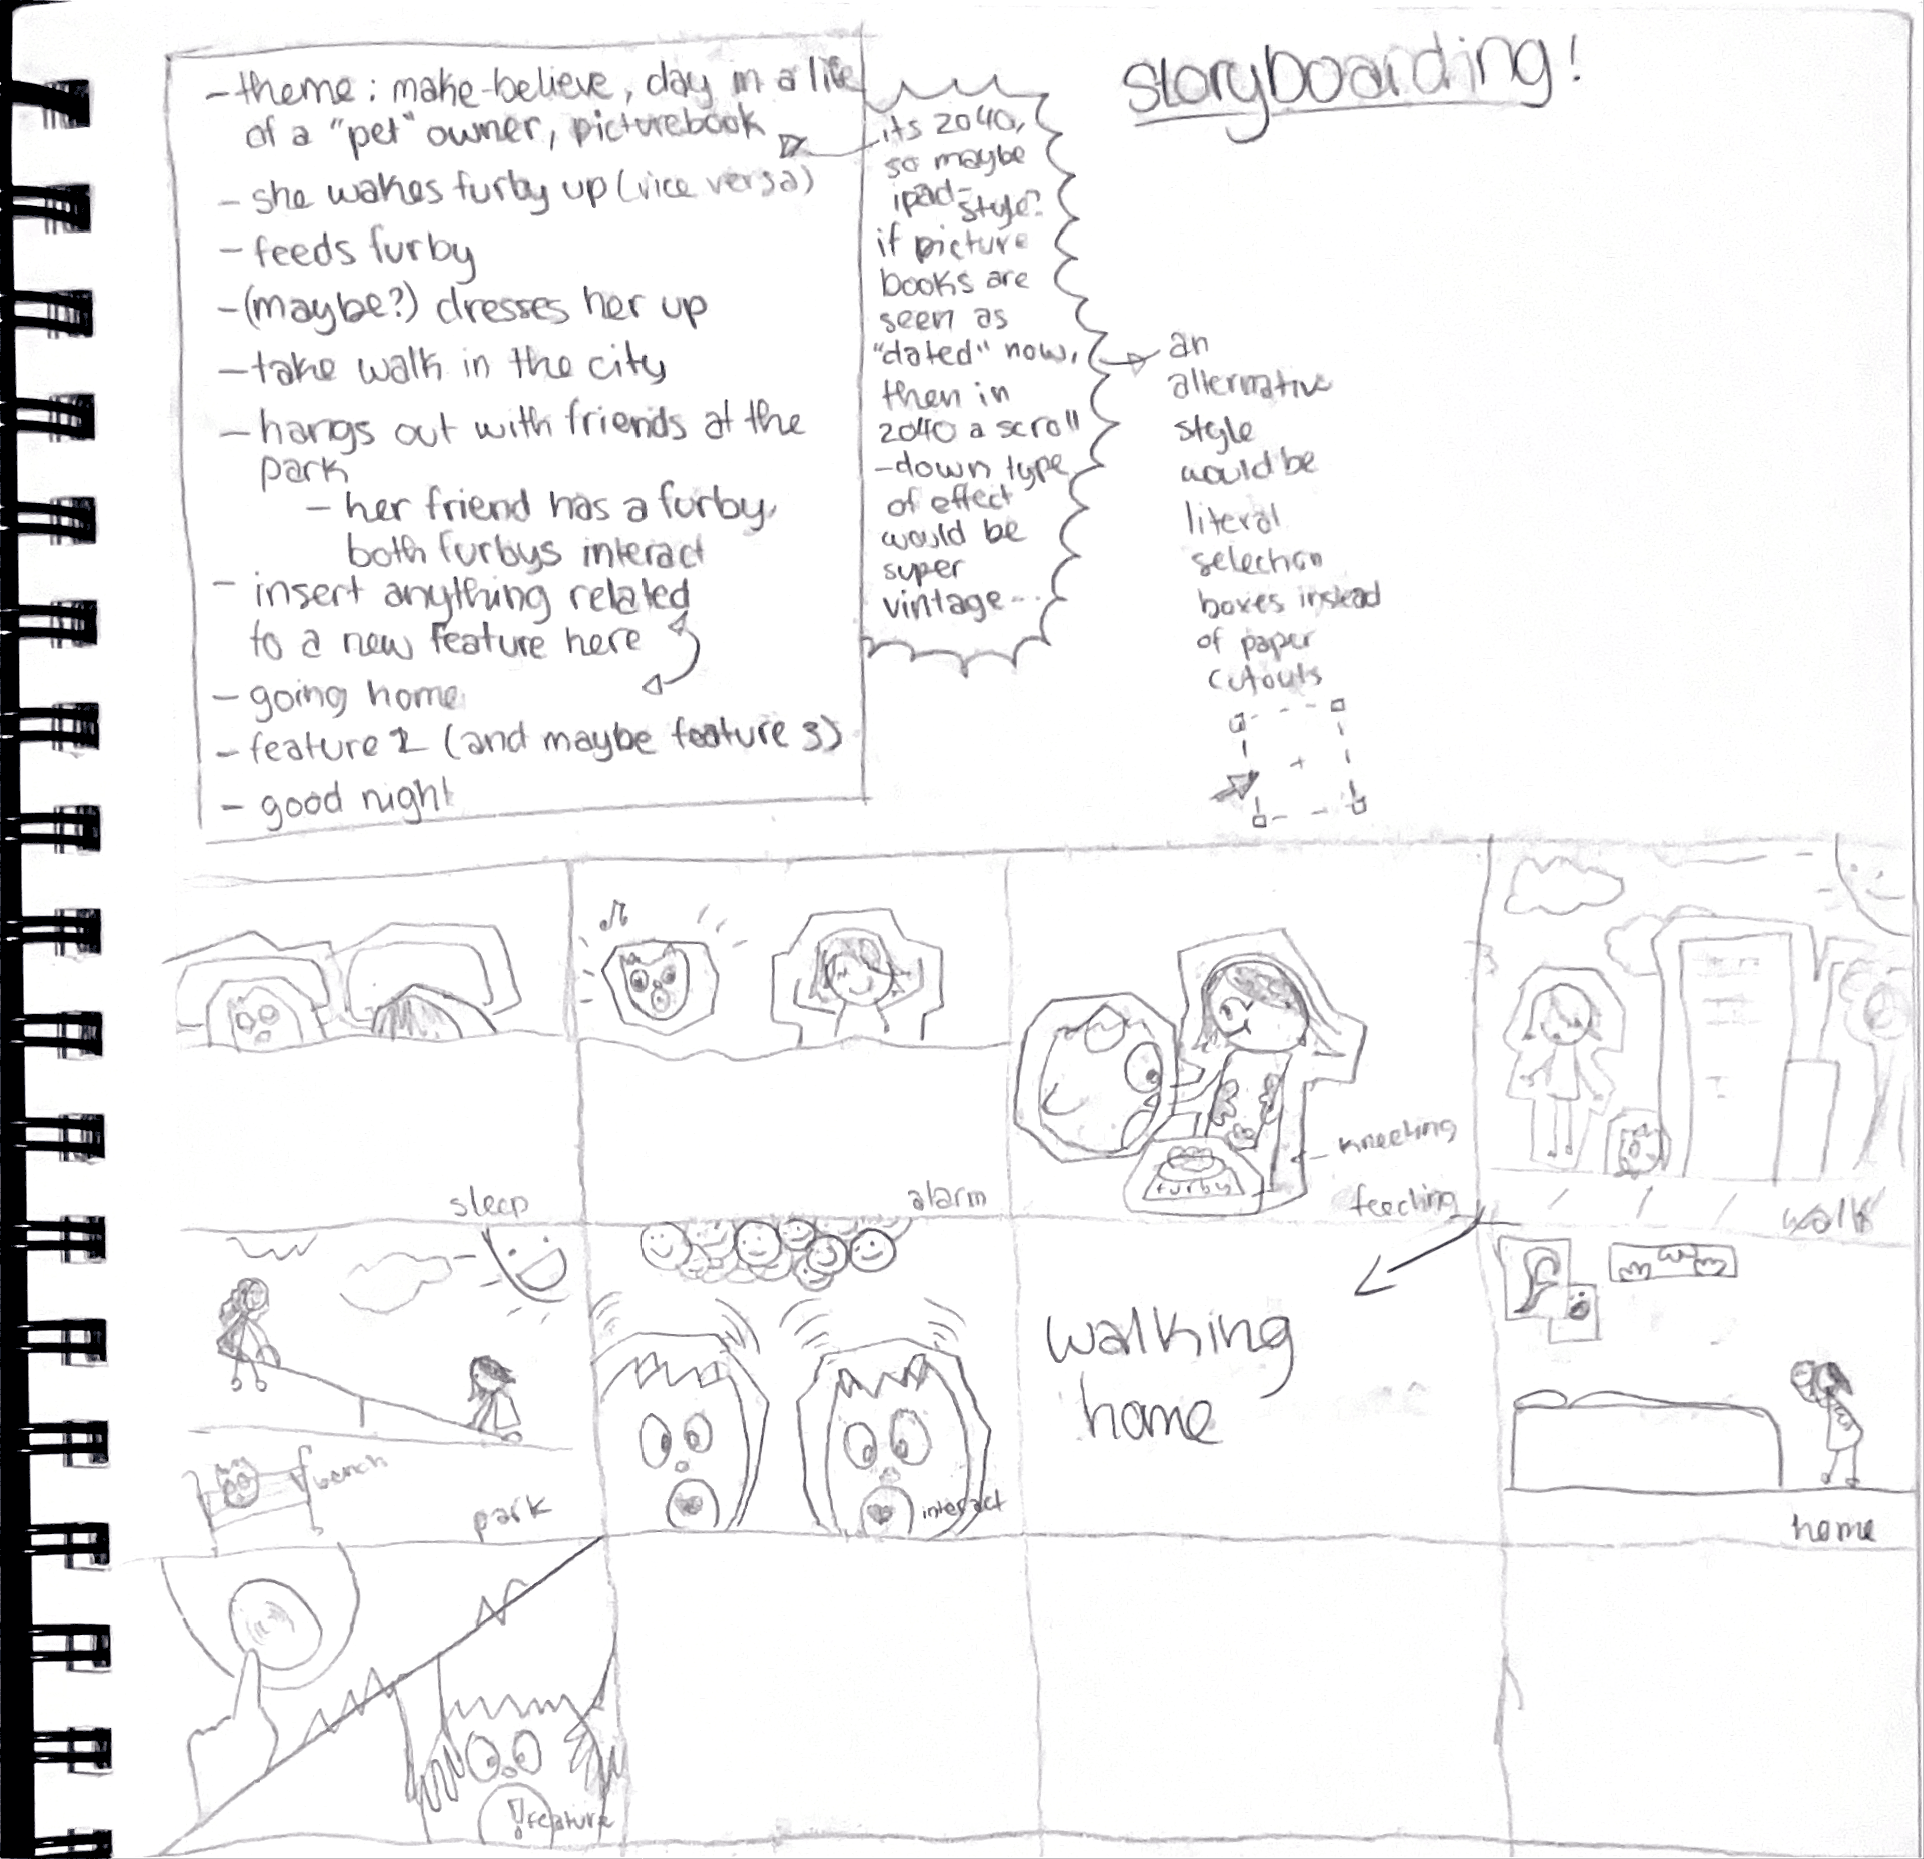 storyboarding!
- theme: make-believe, day in a life
of a "pet" owner, picturebook
- she wakes furby up (vice versa)
- feeds furby
- (maybe?) dresses her up
- take walk in the city
- hangs out with friends at the
park
- her friend has a furby,
both furbys interact
- insert anything related
to a new feature here
- going home
- feature 2 (and maybe feature 3)
- good night
its 2040,
so maybe
ipad-
style?
if picture
books are
seen as
"dated" now,
then in
2040 a scroll
-down type
of effect
would be
super
vintage...
an
alternative
style
would be
literal
selection
boxes instead
of paper
cutouts
sleep
alarm
furby
kneeling
feeding
walk
bench
park
interact
walking
home
home
feature